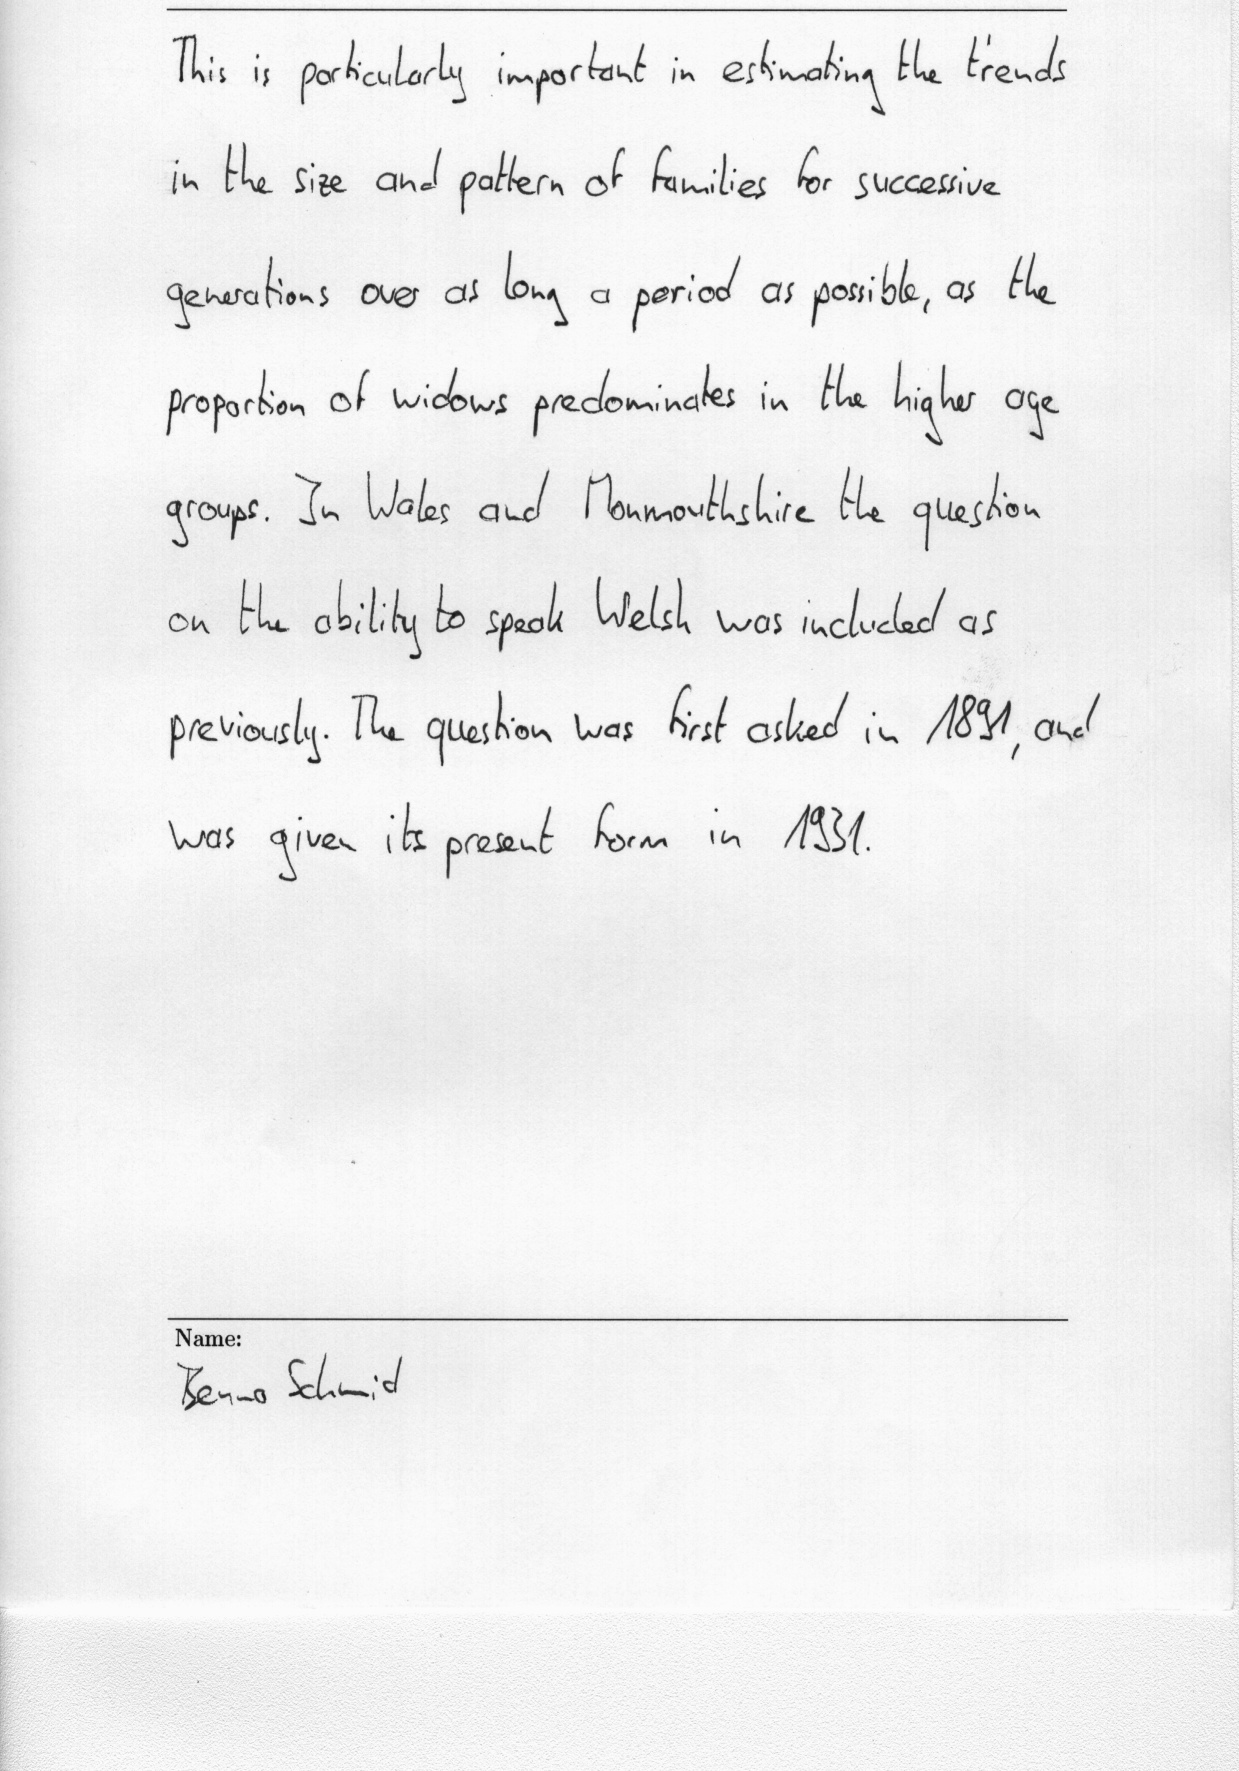 This is particularly important in estimating the trends
in the size and pattern of families for successive
generations over as long a period as possible, as the
proportion of widows predominates in the higher age
groups. In Wales and Monmouthshire the question
on the ability to speak Welsh was included as
previously. The question was first asked in 1891, and
was given its present form in 1931.
Name:
Benno Schmid